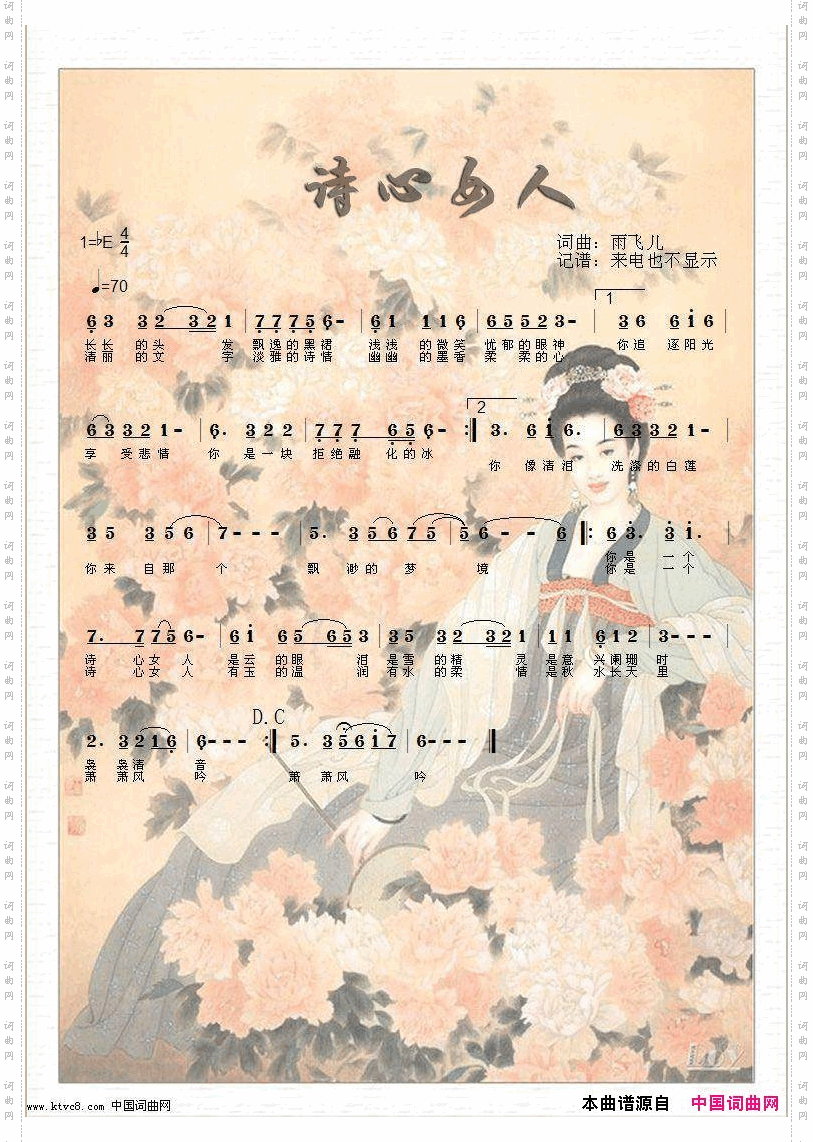 诗心女人
1=♭E 4/4
词曲：雨飞儿
记谱：来电也不显示
♩=70
1
6 3 3 2 3 2 1 | 7 7 7 5 6 - | 6 1 1 1 6 | 6 5 5 2 3 - | 3 6 6 i 6 |
长长 的头 发 飘逸的黑裙 浅浅 的微笑 忧郁的眼神 你追 逐阳光
清丽 的文 字 淡雅的诗情 幽幽 的墨香 柔柔的心
2
6 3 3 2 1 - | 6. 3 2 2 | 7 7 7 6 5 6 - :| 3. 6 i 6. | 6 3 3 2 1 - |
享 受悲情 你 是一块 拒绝融 化的冰
你 像清泪 洗涤的白莲
3 5 3 5 6 | 7 - - - | 5. 3 5 6 7 5 | 5 6 - - 6 |: 6 3. 3 i. |
你来 自那 个 飘 渺的 梦 境 你是 一个
你是 一个
7. 7 7 5 6 - | 6 i 6 5 6 5 3 | 3 5 3 2 3 2 1 | 1 1 6 1 2 | 3 - - - |
诗 心女 人 是云 的眼 泪 是雪 的精 灵 是意 兴阑珊 时
诗 心女 人 有玉 的温 润 有水 的柔 情 是秋 水长天 里
D.C
2. 3 2 1 6 | 6 - - - :| 5. 3 5 6 i 7 | 6 - - - ‖
袅 袅清 音
萧 萧风 吟 萧 萧风 吟
www.ktvc8.com 中国词曲网
本曲谱源自 中国词曲网
词曲网